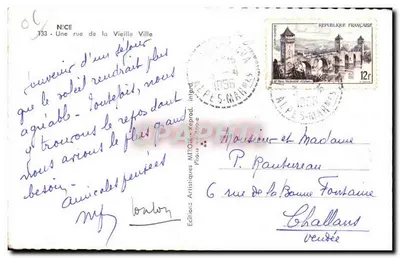 NICE
133 - Une rue de la Vieille Ville
Souvenir d'un séjour
que le soleil rendrait plus
agréable. Toutefois, nous
y trouvons le repos dont
nous avions le plus grand
besoin.
Amicales pensées
Editions Artistiques
Reprod. interd.
REPUBLIQUE FRANÇAISE
12F
ALPES-MARIMES
ALPES-MARIMES
Monsieur et Madame
P.
6 rue de la Bonne Fontaine
Challans
Vendée